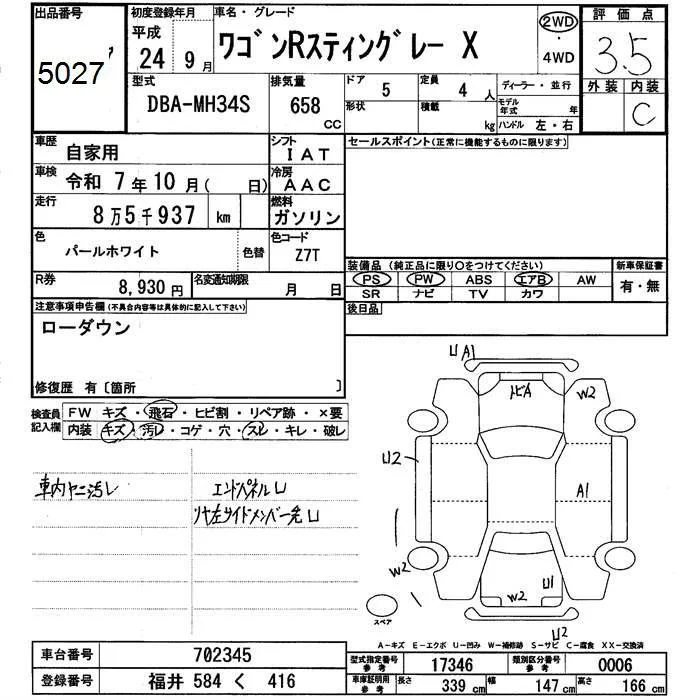 出品番号 初度登録年月 車名・グレード 2WD 評価点
ア 平成 ワゴンRスティングレー X 3.5
5027 24年 9月 4WD 外装 内装
型式 排気量 ドア 5 定員 4人 ディーラー・並行 C
DBA-MH34S 658CC 形状 積載 kg モデル年式 年
ハンドル 左・右
車歴 自家用 シフト IAT セールスポイント(正常に機能するものに限ります)
車検 令和 7年10月( 日) 冷房 AAC
走行 8万5千937 km 燃料 ガソリン
色 パールホワイト 色替 色コード Z7T
装備品 (純正品に限り○をつけてください) 新車保証書
R券 8,930円 名変通知期限 月 日 PS PW ABS エアB AW 有・無
SR ナビ TV カワ
注意事項申告欄(不具合内容等は具体的に記入して下さい) 後日品
ローダウン
修復歴 有〔箇所 〕
検査員記入欄 FW キズ・飛石・ヒビ割・リペア跡・×要
内装 キズ・汚レ・コゲ・穴・スレ・キレ・破レ
車内ヤニ汚レ エンドパネルU
リヤ左サイドメンバー先U
UA1
トビA W2
U2
A1
W2
W2 U1
スペア
U2
A-キズ E-エクボ U-凹み W-補修跡 S-サビ C-腐食 XX-交換済
車台番号 702345 型式指定番号 参考 17346 類別区分番号 参考 0006
登録番号 福井 584 く 416 車庫証明用 参考 長さ 339cm 幅 147cm 高さ 166cm